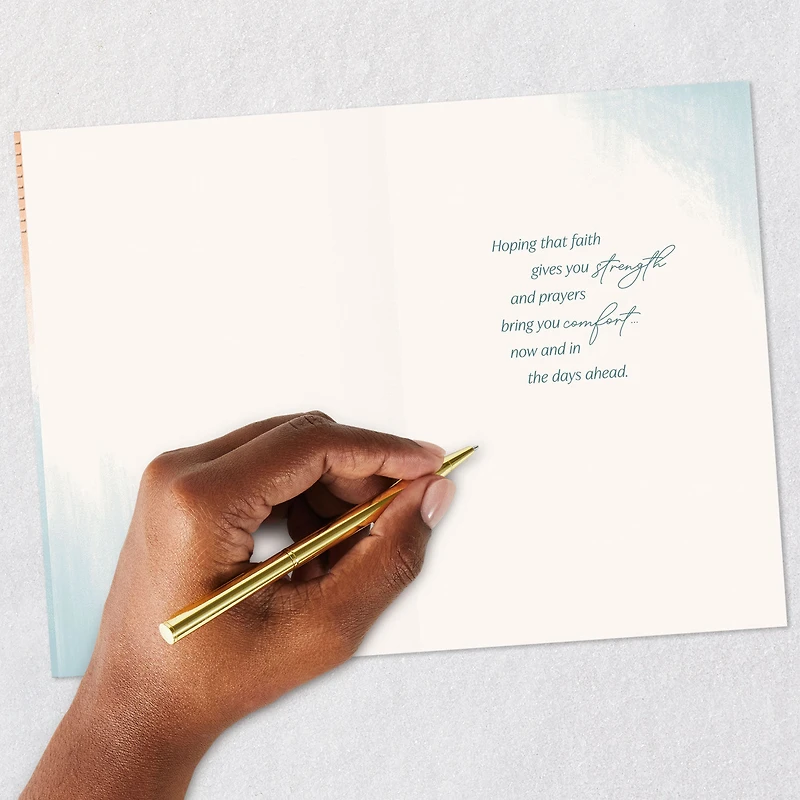 Hoping that faith
gives you strength
and prayers
bring you comfort...
now and in
the days ahead.